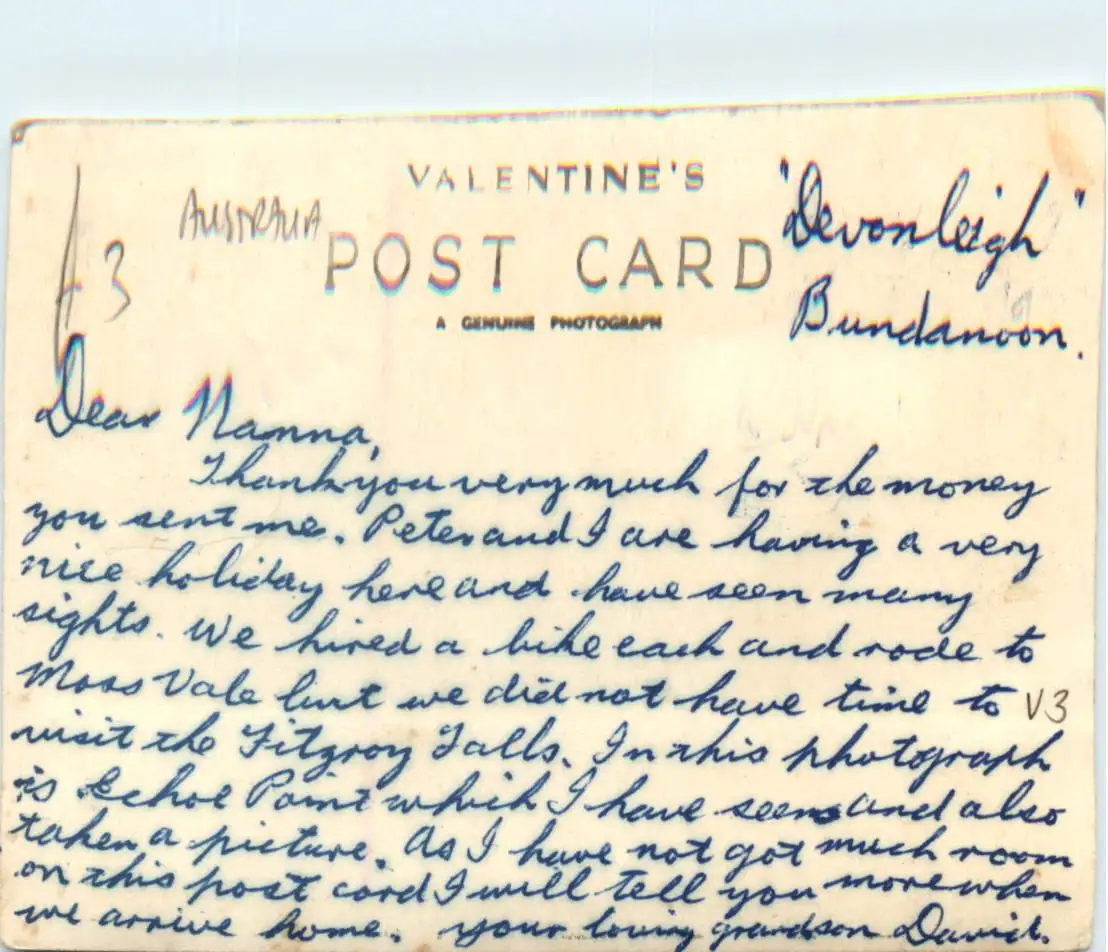 VALENTINE'S
AUSTRALIA
POST CARD
A GENUINE PHOTOGRAPH
"Devonleigh"
Bundanoon.
Dear Nanna,
Thank you very much for the money
you sent me. Peter and I are having a very
nice holiday here and have seen many
sights. We hired a bike each and rode to
Moss Vale but we did not have time to
V3
visit the Fitzroy Falls. In this photograph
is Echoe Point which I have seen and also
taken a picture. As I have not got much room
on this post card I will tell you more when
we arrive home. your loving grandson David.